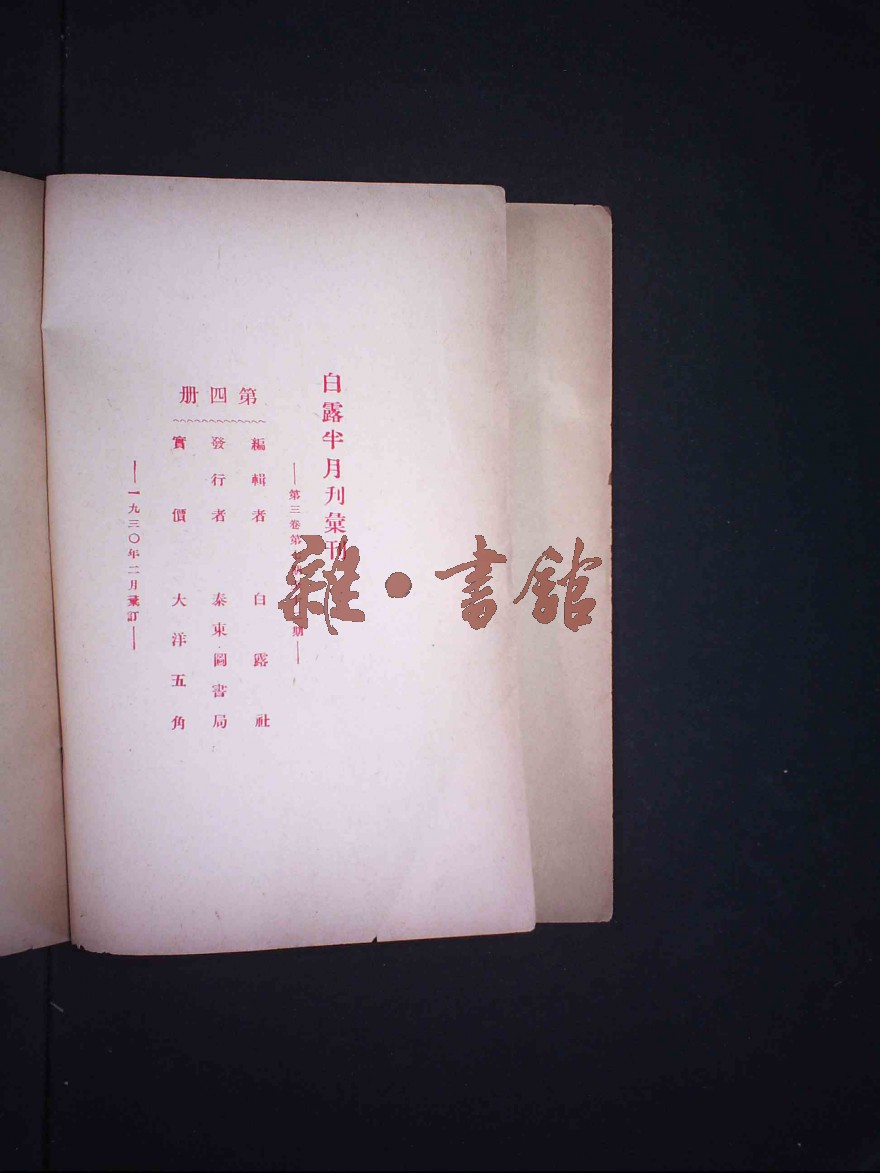 白露半月刊彙刊
——第三卷第 期——
第四册
編輯者 白露社
發行者 泰東圖書局
實價 大洋五角
——一九三〇年二月彙訂——
雜·書館